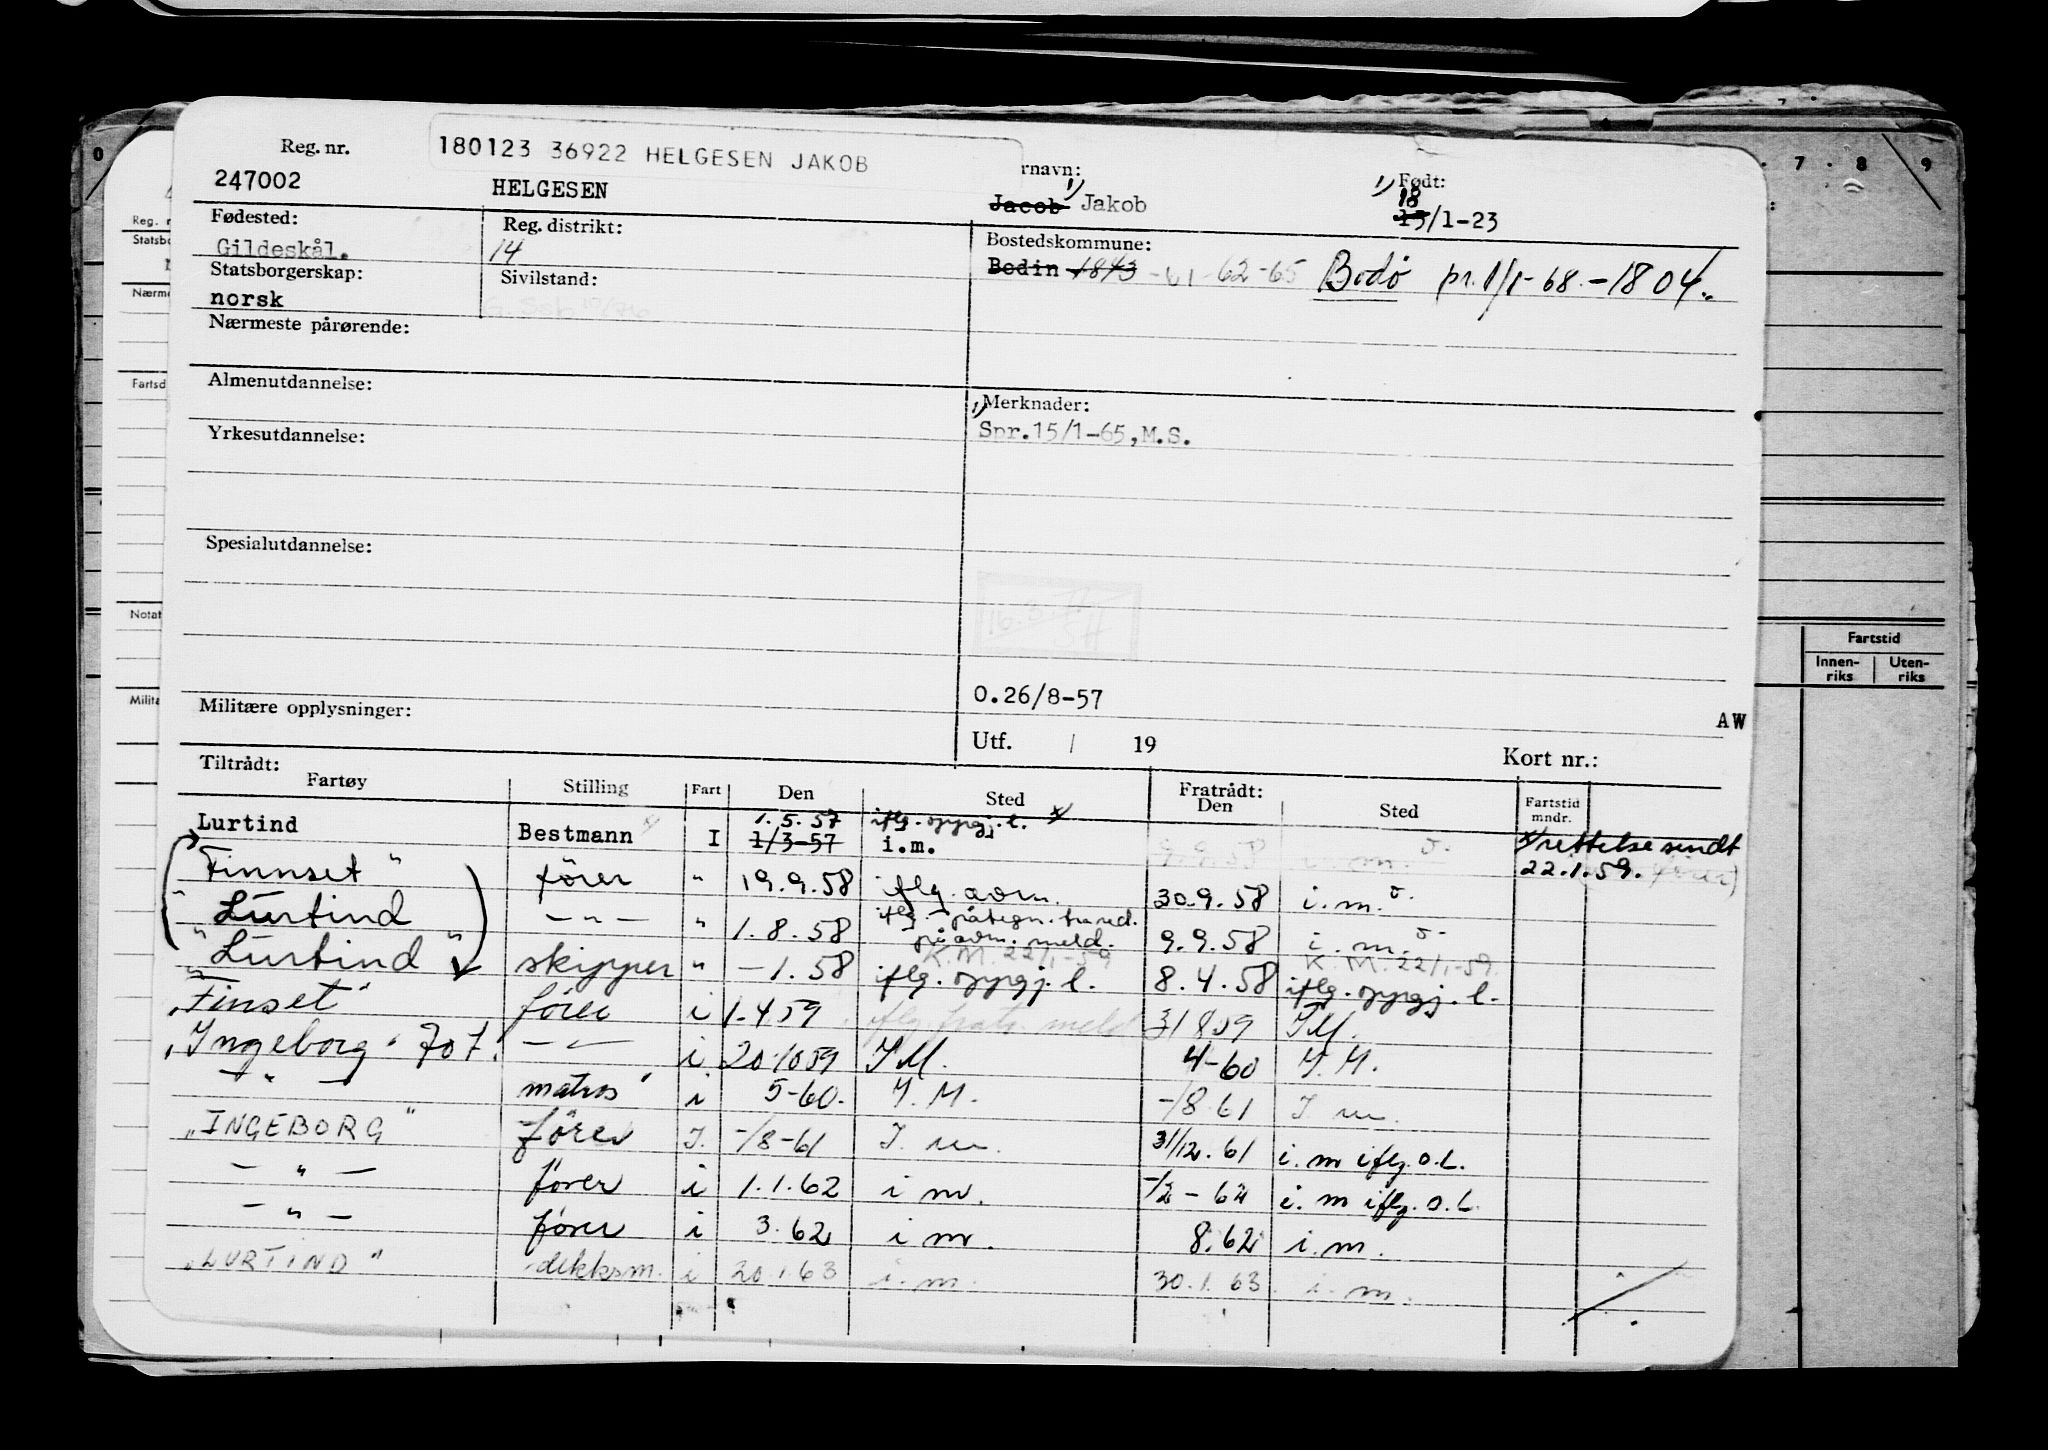 Reg. nr.
180123 36922 HELGESEN JAKOB
rnavn:
1) Født:
247002 HELGESEN Jacob 1) Jakob 13 18/1-23
Fødested: Reg. distrikt: Bostedskommune:
Gildeskål. 14 Bodin 1843 -61-62-65 Bodø pr. 1/1-68.-1804.
Statsborgerskap: Sivilstand:
norsk
Nærmeste pårørende:
Almenutdannelse:
1) Merknader:
Spr.15/1-65,M.S.
Yrkesutdannelse:
Spesialutdannelse:
O.26/8-57
Militære opplysninger: AW
Utf. / 19 Kort nr.:
Tiltrådt: Fratrådt:
Fartøy Stilling Fart Den Sted Den Sted Fartstid mndr.
1.5.57 iflg. oppgj. l. x/
Lurtind Bestmann I 1/3-57 i.m. 9.9.58 i.m. x/ rettelse sendt
22.1.59.
Finnset" fører " 19.9.58 iflg. avm. 30.9.58 i.m.
"Lurtind — " — " 1.8.58 iflg. påtegn. på avm. meld. 9.9.58 i.m.
K.M. 22/1-59 K.M. 22/1-59
"Lurtind" skipper " —1.58 iflg. oppgj. l. 8.4.58 iflg. oppgj. l.
"Finset" fører i 1.4 59 iflg. fratr. meld 31 8 59 I M.
"Ingeborg" 707. — " — i 20 10 59 I M. 4-60 I. M.
— " — matros i 5-60. I. M. -/8 61 I. m.
"INGEBORG" fører I. -/8-61 I. m. 31/12. 61 i. m iflg. o.l.
— " — fører i 1.1.62 i m. -/2 - 62 i. m iflg. o.l.
— " — fører i 3.62 i m. 8.62 i.m.
"LURTIND" dekksm. i 20.1.63 i.m. 30.1.63 i.m.
0 7 8 9
Reg. n
Statsb
Nærme
Fartsd
Notat
Milita
Fartstid
Innen-riks Uten-riks